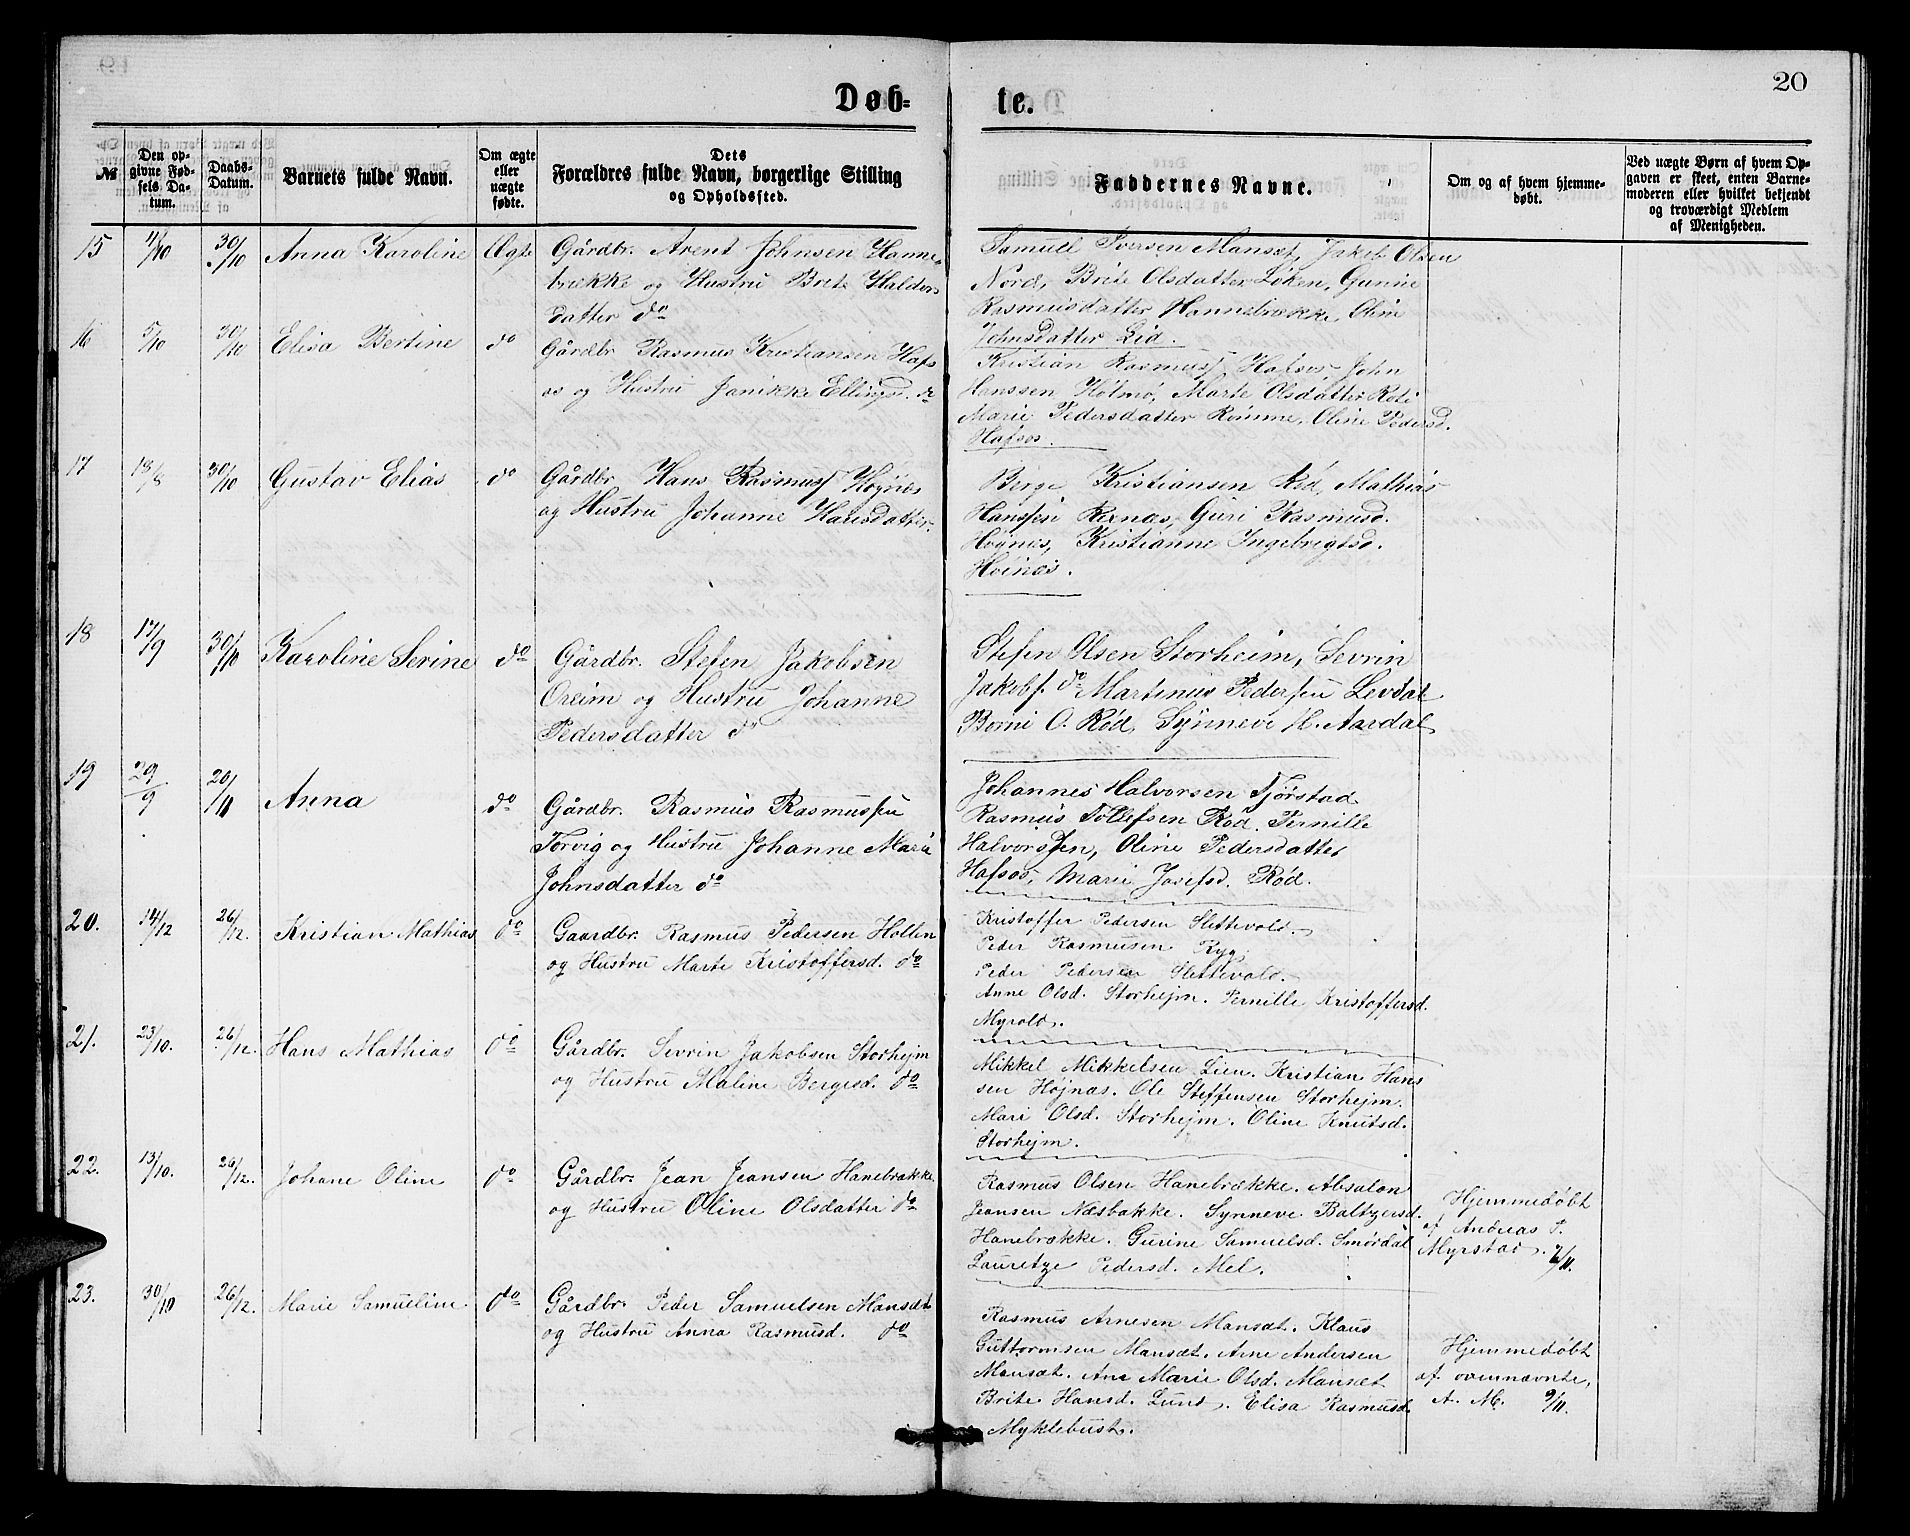 Døb-
te.
20
№
Den op-
givne Fød-
sels Da-
tum.
Daabs-
Datum.
Barnets fulde Navn.
Om ægte
eller
uægte
fødte.
Dets
Forældres fulde Navn, borgerlige Stilling
og Opholdssted.
Faddernes Navne.
Om og af hvem hjemme-
døbt.
Ved uægte Børn af hvem Op-
gaven er skeet, enten Barne-
moderen eller hvilket bekjendt
og troværdigt Medlem
af Menigheden.
15 4/10 30/10 Anna Karoline Ægte
Gårdbr. Arent Johnsen Hanne-
brække og Hustru Brite Haldor-
datter do
Samuel Iversen Mansæt, Jakob Olsen
Nord, Brite Olsdatter Løken, Gunne
Rasmusdatter Hannebrække, Oline
Johnsdatter Lid.
16 5/10 30/10 Elisa Bertine do
Gårdbr. Rasmus Kristiansen Hafs
os og Hustru Janikke Ellingsd. do
Kristian Rasmuss Hafsos John
Hanssen Holmø, Marte Olsdatter
Marie Pedersdatter Romme, Oline Pedersd.
Hafsos.
17 18/8 30/10 Gustav Elias do
Gårdbr. Hans Rasmuss Høynes
og Hustru Johanne Hansdatter
Berge Kristiansen Rød, Mathias
Hanssen Rexnæs, Guri Rasmusd.
Høynes, Kristianne Ingebrigtsd.
Høinæs.
18 17/9 30/10 Karoline Serine do
Gårdbr. Stefen Jakobsen
Oreim og Hustru Johanne
Pedersdatter do
Stefen Olsen Storheim, Sevrin
Jakobs. do Martinus Pedersen Levdal
Borni O. Rød, Synneve H. Aardal
19 29/9 20/11 Anna do
Gårdbr. Rasmus Rasmussen
Torvig og Hustru Johanne Marie
Johnsdatter do
Johannes Halvorsen Tjørstad
Rasmus Tollefsen Rød. Pernille
Halvorssen, Oline Pedersdatter
Hafsos, Marie Josefsd. Rød.
20. 14/12 26/12. Kristian Mathias do
Gaardbr. Rasmus Pedersen Hollen
og Hustru Marte Kristoffersd. do
Kristoffer Pedersen Slettevold.
Peder Rasmusen Ryg,
Peder Pedersen Slettevold.
Anne Olsd. Storhejm. Pernille Kristoffersd.
Myrold.
21. 23/10. 26/12. Hans Mathias do
Gårdbr. Sevrin Jakobsen Storhejm
og Hustru Maline Bergesd. do
Mikkel Mikkelsen Lien. Kristian Hans
sen Højnæs. Ole Steffensen Storhejm.
Mari Olsd. Storhejm. Oline Knutsd.
Storhejm.
22. 13/10. 26/12. Johane Oline do
Gårdbr. Jean Jeansen Hanebrække
og Hustru Oline Olsdatter do
Rasmus Olsen Hanebrække. Absalon
Jeansen Næsbakke. Synneve Baltzersd.
Hanebrække. Gurine Samuelsd. Smørdal
Lauretze Pedersd. Mel.
Hjemmedøbt
af Andreas P.
Myrstad. 7/11.
23. 30/10 26/12. Marie Samueline do
Gårdbr. Peder Samuelsen Mansæt
og Hustru Anna Rasmusd. do
Rasmus Arnesen Mansæt. Klaus
Guttormsen Mansæt. Arne Andersen
Mansæt. Ane Marie Olsd. Mansæt
Brite Hansd. Lund. Elisa Rasmusd.
Myklebust.
Hjemmedøbt
af ovennævnte,
A. M. 9/11.